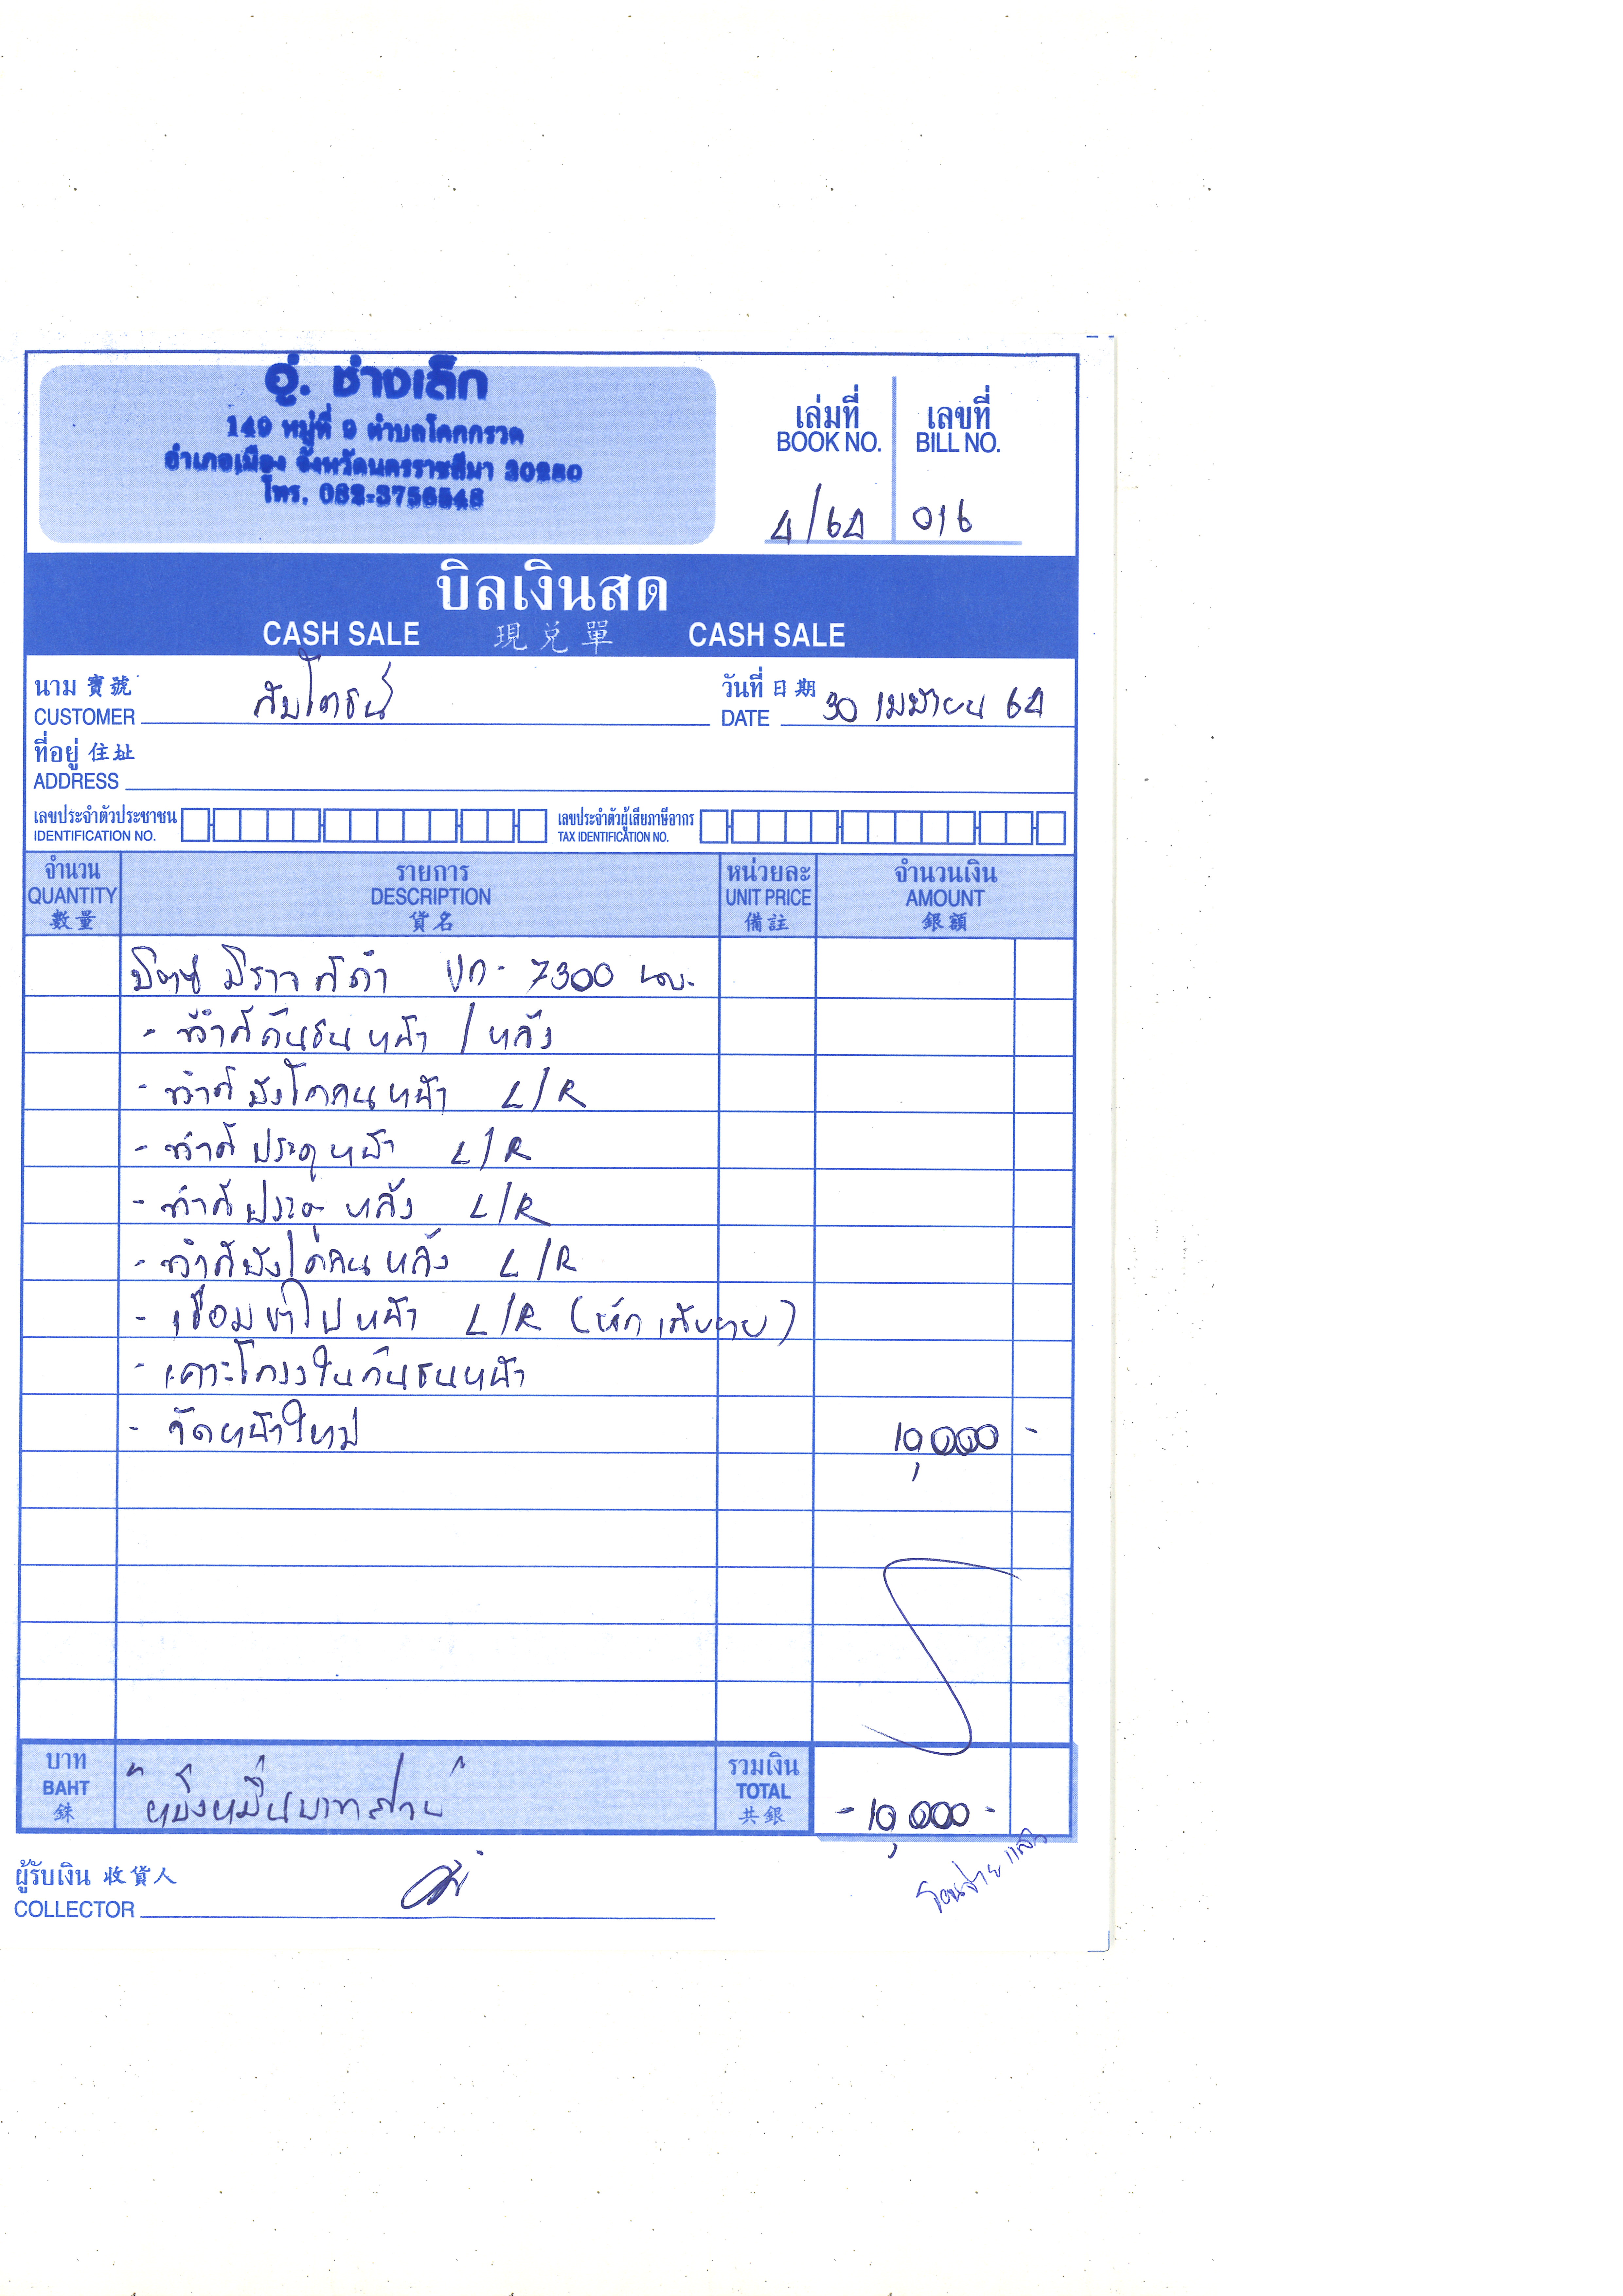 อู่. ช่างเล็ก
149 หมู่ที่ 9 ตำบลโคกกรวด
อำเภอเมือง จังหวัดนครราชสีมา 30280
โทร. 082-3756548
เล่มที่ เลขที่
BOOK NO. BILL NO.
4/64 016
บิลเงินสด
CASH SALE 現兌單 CASH SALE
นาม 寶號 วันที่ 日期 30 เมษายน 64
CUSTOMER DATE
ที่อยู่ 住址
ADDRESS
เลขประจำตัวประชาชน เลขประจำตัวผู้เสียภาษีอากร
IDENTIFICATION NO. TAX IDENTIFICATION NO.
จำนวน รายการ หน่วยละ จำนวนเงิน
QUANTITY DESCRIPTION UNIT PRICE AMOUNT
數量 貨名 備註 銀額
มิตซู มิราจ สีดำ ขก - 7300 นม.
- ทำสีกันชน หน้า / หลัง
- ทำสี บังโคลนหน้า L/R
- ทำสี ประตูหน้า L/R
- ทำสี ประตู หลัง L/R
- ทำสีบังโคลน หลัง L/R
- เชื่อมขาไฟหน้า L/R
- เคาะโครงในกันชนหน้า
- จัดหน้าใหม่ 10,000 -
บาท รวมเงิน
BAHT "หนึ่งหมื่นบาทถ้วน" TOTAL
銖 共銀 - 10,000 -
ผู้รับเงิน 收貨人
COLLECTOR
โอนจ่ายแล้ว